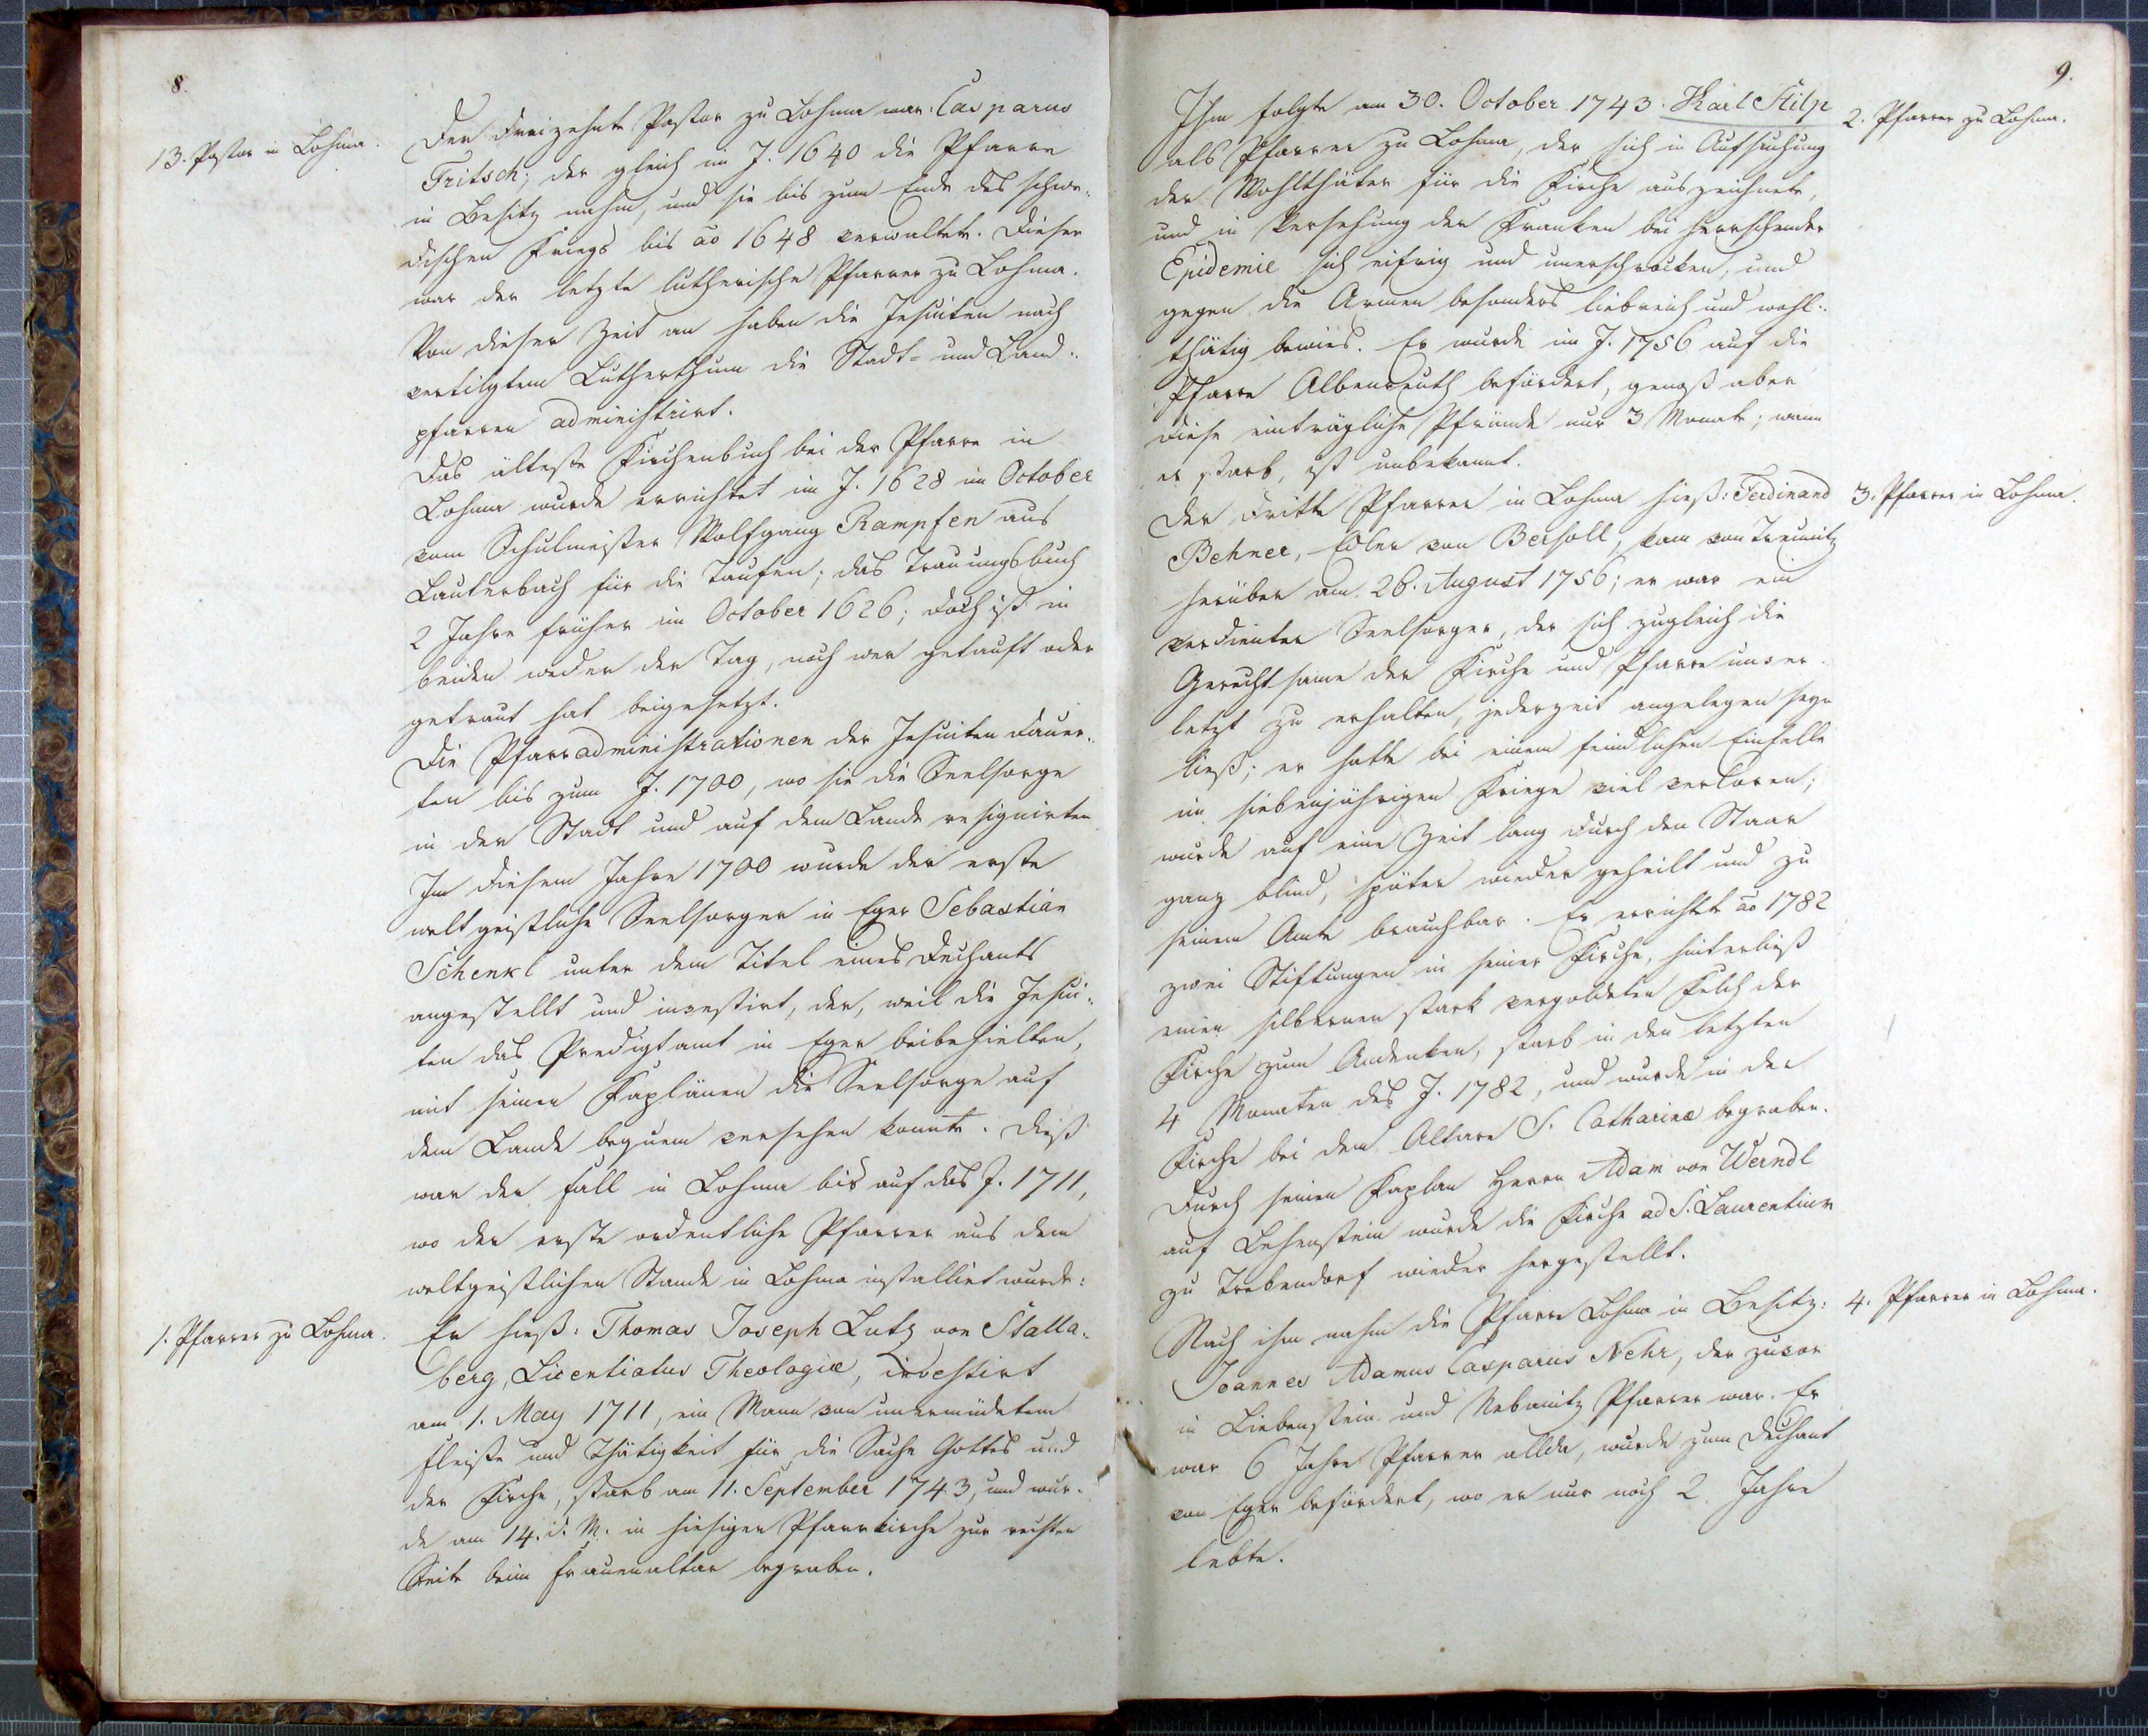 8.
13. Pastor in Lohma.
Der dreizehnte Pastor zu Lohma war: Casparus
Fritsch; der gleich im J. 1640 die Pfarre
in Besitz nahm, und sie bis zum Ende des schwe-
dischen Kriegs bis ao 1648 verwaltete. Dieser
war der letzte lutherische Pfarrer zu Lohma.
Von dieser Zeit an haben die Jesuiten nach
vertilgtem Lutherthum die Stadt- und Land-
pfarren administrirt.
Das älteste Kirchenbuch bei der Pfarre in
Lohma wurde errichtet im J. 1628 im October
vom Schulmeister Wolfgang Rampfen aus
Lauterbach für die Taufen; das Trauungsbuch
2 Jahre früher im October 1626; doch ist in
beiden weder der Tag, noch wer getauft oder
getraut hat beigesetzt.
Die Pfarradministrationen der Jesuiten dauer-
ten bis zum J. 1700, wo sie die Seelsorge
in der Stadt und auf dem Lande resignirten.
Im diesem Jahre 1700 wurde der erste
weltgeistliche Seelsorger in Eger Sebastian
Schenkl unter dem Titel eines Dechants
angestellt und investirt, der, weil die Jesui-
ten das Predigtamt in Eger beibehielten,
mit seinen Kaplänen die Seelsorge auf
dem Lande bequem versehen konnte. Dieß
war der Fall in Lohma bis auf das J. 1711,
wo der erste ordentliche Pfarrer aus dem
weltgeistlichen Stande in Lohma installiet wurde:
1. Pfarrer zu Lohma.
Er hieß: Thomas Joseph Lutz von Stalla-
berg, Licentiatus Theologiæ, investirt
am 1. May 1711, ein Mann von unermüdetem
Fleiße und Thätigkeit für die Sache Gottes und
der Kirche, starb am 11. September 1743, und wur-
de am 14. d. M. in hiesiger Pfarrkirche zur rechten
Seite beim Frauenaltar begraben.
9.
Ihm folgte am 30. October 1743. Karl Stilp
2. Pfarrer zu Lohma.
als Pfarrer zu Lohma, der sich in Aufsuchung
der Wohlthäter für die Kirche auszeichnete,
und in Versehung der Kranken bei herrschender
Epidemie sich eifrig und unerschrocken, und
gegen die Armen besonders liebreich und wohl-
thätig bewies. Er wurde im J. 1756 auf die
Pfarre Albenreuth befördert, genoß aber
diese einträgliche Pfründe nur 3 Monate; wann
er starb, ist unbekannt.
Der dritte Pfarrer in Lohma hieß: Ferdinand
3. Pfarrer in Lohma.
Behner, Edler von Bersoll, kam von Treunitz
herüber am 26. August 1756; er war ein
verdienter Seelsorger, der sich zugleich die
Gerechtsame der Kirche und Pfarre unver-
letzt zu erhalten, jederzeit angelegen seyn
ließ; er hatte bei einem feindlichen Einfalle
im siebenjährigen Kriege viel verloren;
wurde auf eine Zeit lang durch den Staar
ganz blind, später wieder geheilt und zu
seinem Amte brauchbar. Er errichtete ao 1782
zwei Stiftungen in seiner Kirche, hinterließ
einen silbernen stark vergoldeten Kelch der
Kirche zum Andenken, starb in den letzten
4 Monaten des J. 1782, und wurde in der
Kirche bei dem Altare S. Catharinæ begraben.
Durch seinen Kaplan Herrn Adam von Werndl
auf Lehenstein wurde die Kirche ad S. Laurentium
zu Trebendorf wieder hergestellt.
Nach ihm nahm die Pfarre Lohma in Besitz:
4. Pfarrer in Lohma.
Joannes Adamus Casparus Nehr, der zuvor
in Liebenstein und Nebanitz Pfarrer war. Er
war 6 Jahre Pfarrer allda, wurde zum Dechant
von Eger befördert, wo er nur noch 2 Jahre
lebte.